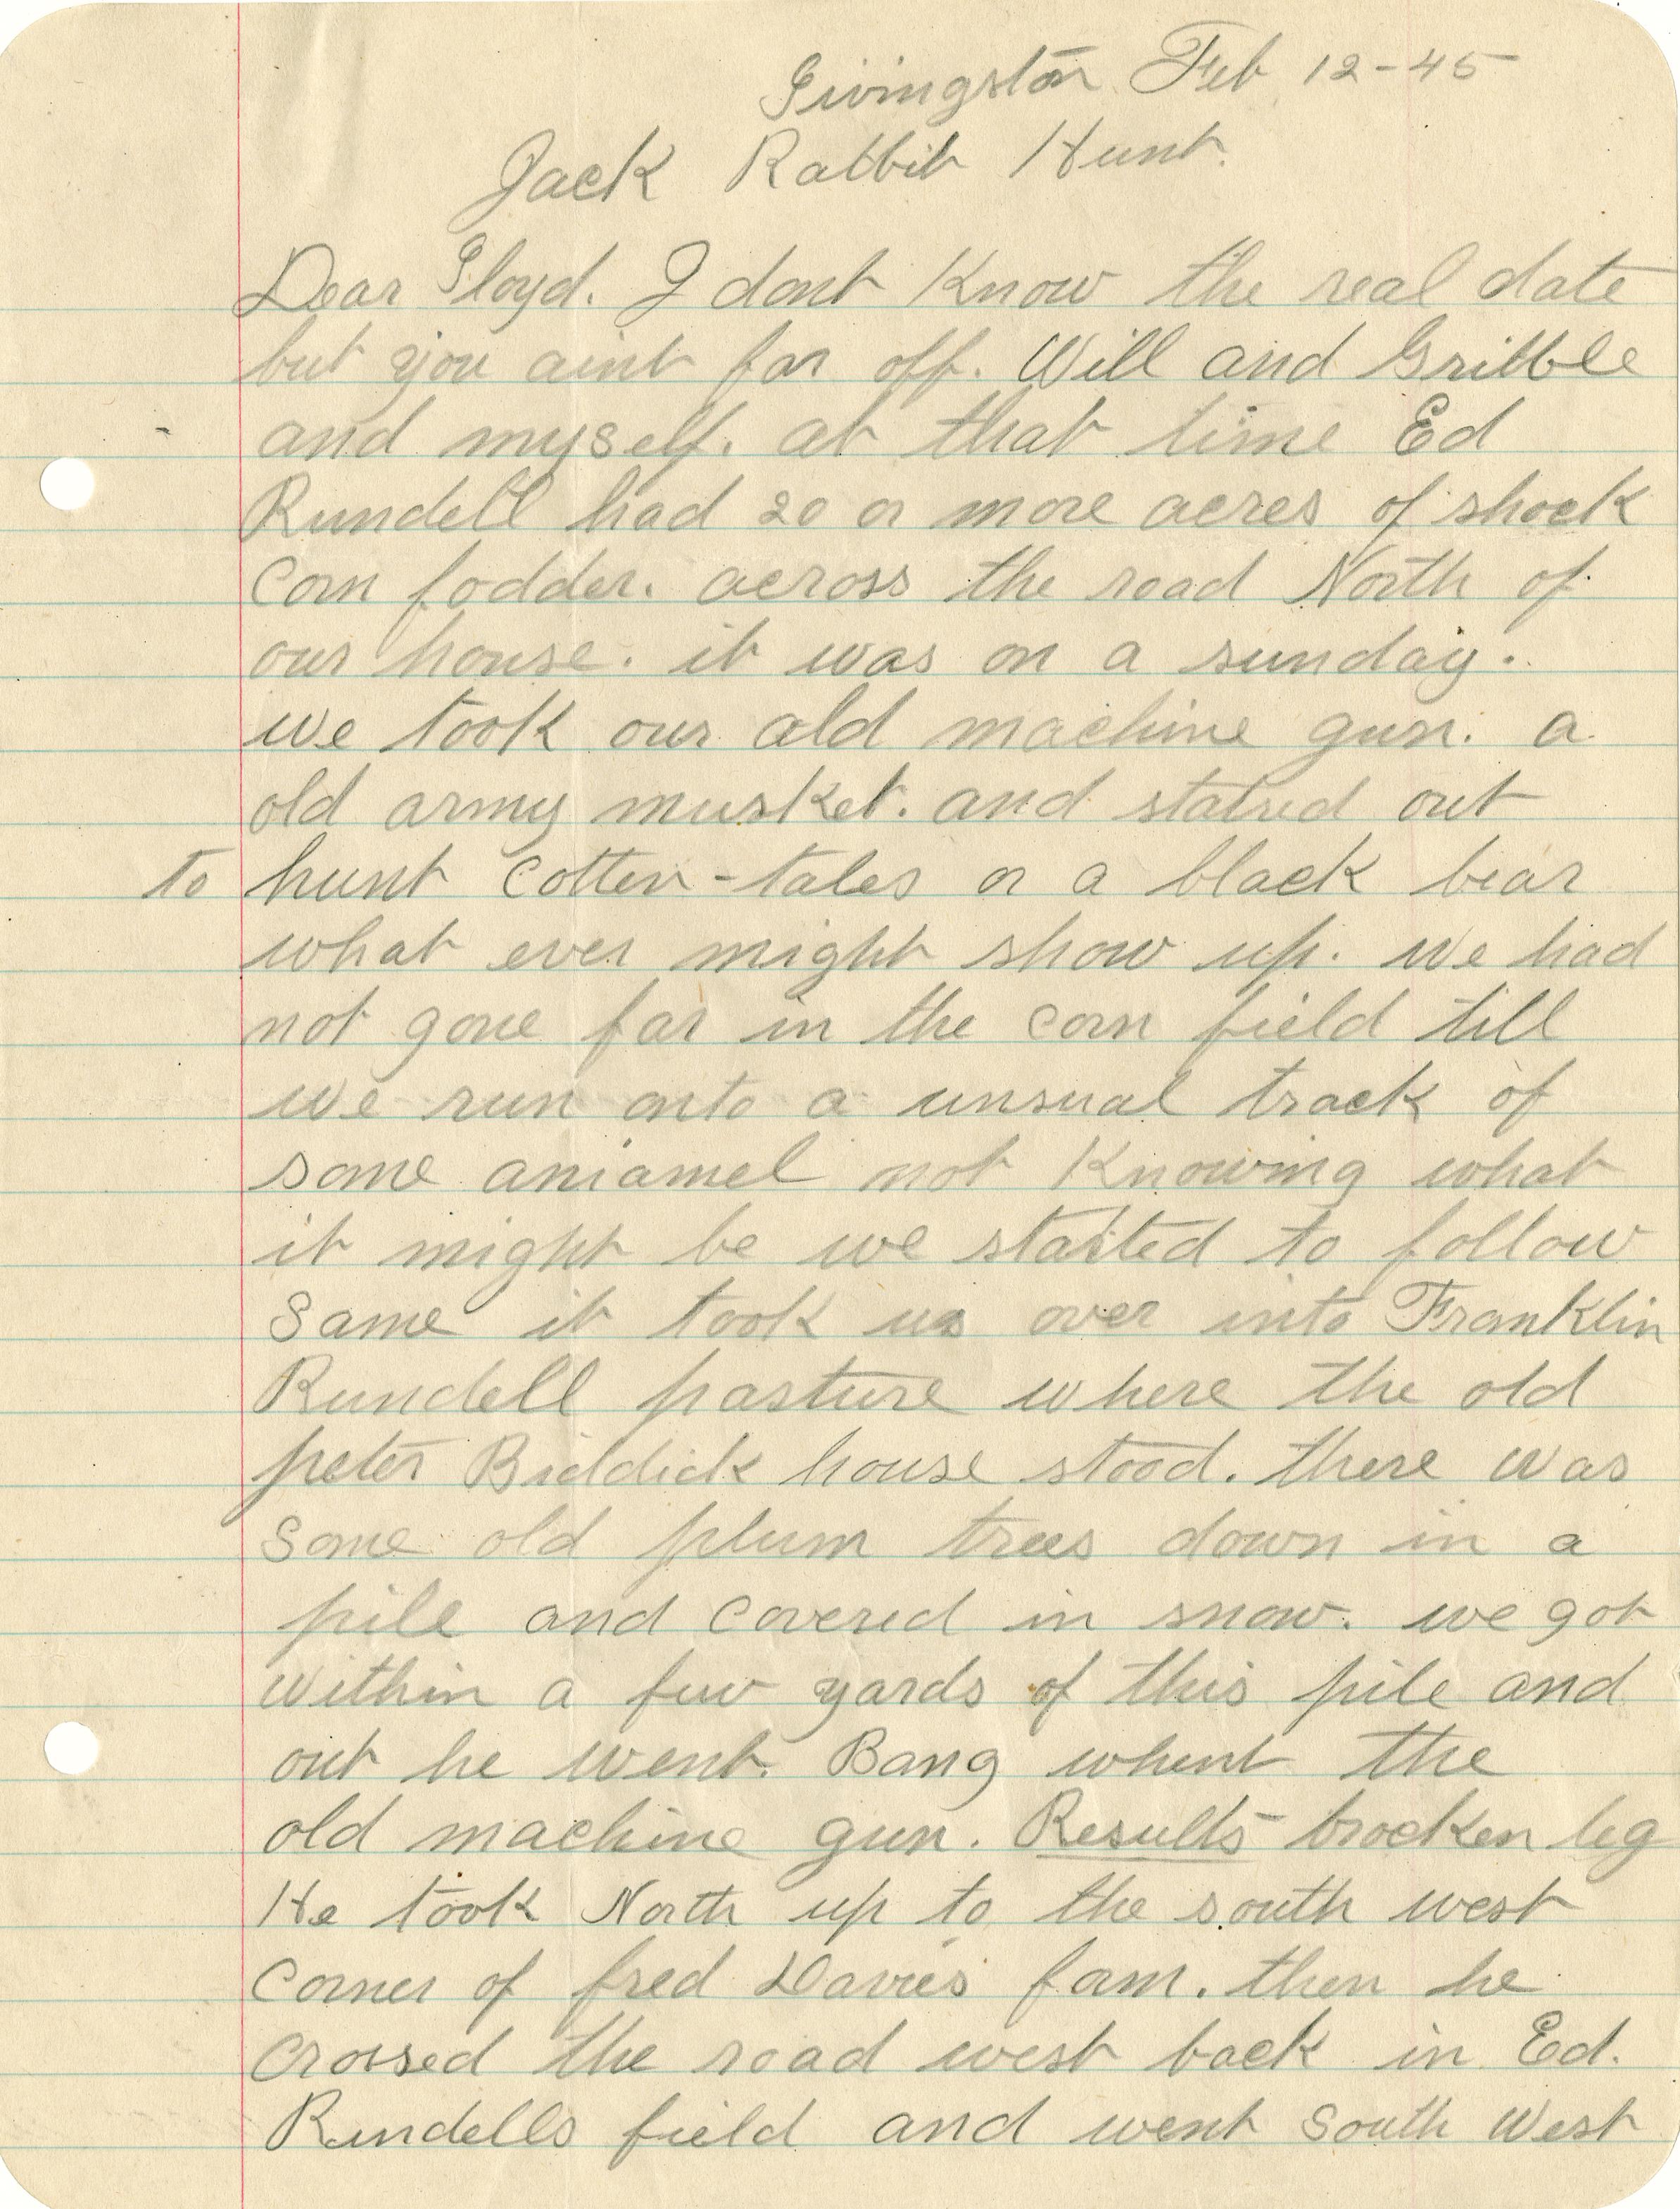 Livingston Feb 12-45
Jack Rabbit Hunt.
Dear Lloyd. I dont Know the real date
but you aint far off. Will and Gribble
and myself. at that time Ed
Rundell had 20 or more acres of shock
Corn fodder. across the road North of
our house. it was on a sunday.
we took our old machine gun. a
old army musket. and statred out
to hunt Cotten-tales or a black bear
what ever might show up. we had
not gone far in the corn field till
we run onto a unsual track of
some aniamel not Knowing what
it might be we started to follow
Same it took us over into Franklin
Rundell pasture where the old
peter Biddick house stood. there was
Some old plum trees down in a
pile and Covered in snow. we got
within a few yards of this pile and
out he went. Bang whent the
old machine gun. Results brocken leg
He took North up to the south west
Corner of fred Davies farm. then he
Crossed the road west back in Ed.
Rundells field and went South West